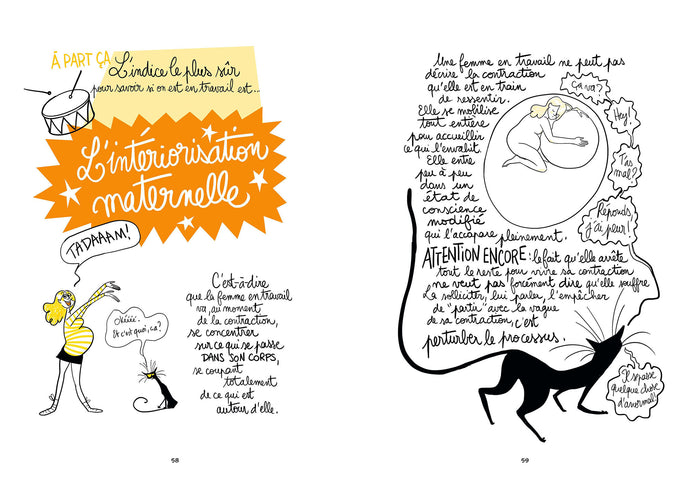 À PART ÇA
L'indice le plus sûr
pour savoir si on est en travail est...
L'intériorisation
maternelle
TADAAAM!
Okéiii.
Et c'est quoi, ça?
C'est-à-dire
que la femme en travail
va, au moment
de la contraction,
se concentrer
sur ce qui se passe
DANS SON CORPS,
se coupant
totalement
de ce qui est
autour d'elle.
58
Une femme en travail ne peut pas
décrire la contraction
qu'elle est en train
de ressentir.
Elle se mobilise
tout entière
pour accueillir
ce qui l'envahit.
Elle entre
peu à peu
dans un
état de
conscience
modifié
qui l'accapare pleinement.
Ça va?
Hey!
T'as
mal?
Réponds,
j'ai peur!
ATTENTION ENCORE: le fait qu'elle arrête
tout le reste pour vivre sa contraction
ne veut pas forcément dire qu'elle souffre
La solliciter, lui parler, l'empêcher
de "partir" avec la vague
de sa contraction, c'est
perturber le processus.
Il se passe
quelque chose
d'anormal!
59